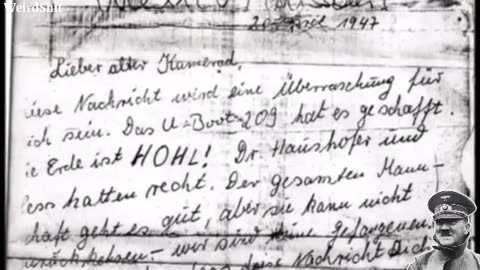 WeirdShit
1947
Lieber alter Kamerad,
Nachricht wird eine Überraschung für
ich sein. Das U-Boot 209 hat es geschafft.
ie Erde ist HOHL! Dr. Haushofer und
ess hatten recht. Der gesamten Mann-
haft geht es gut, aber sie kann nicht
wir sind keine Gefangenen.
diese Nachricht Dich